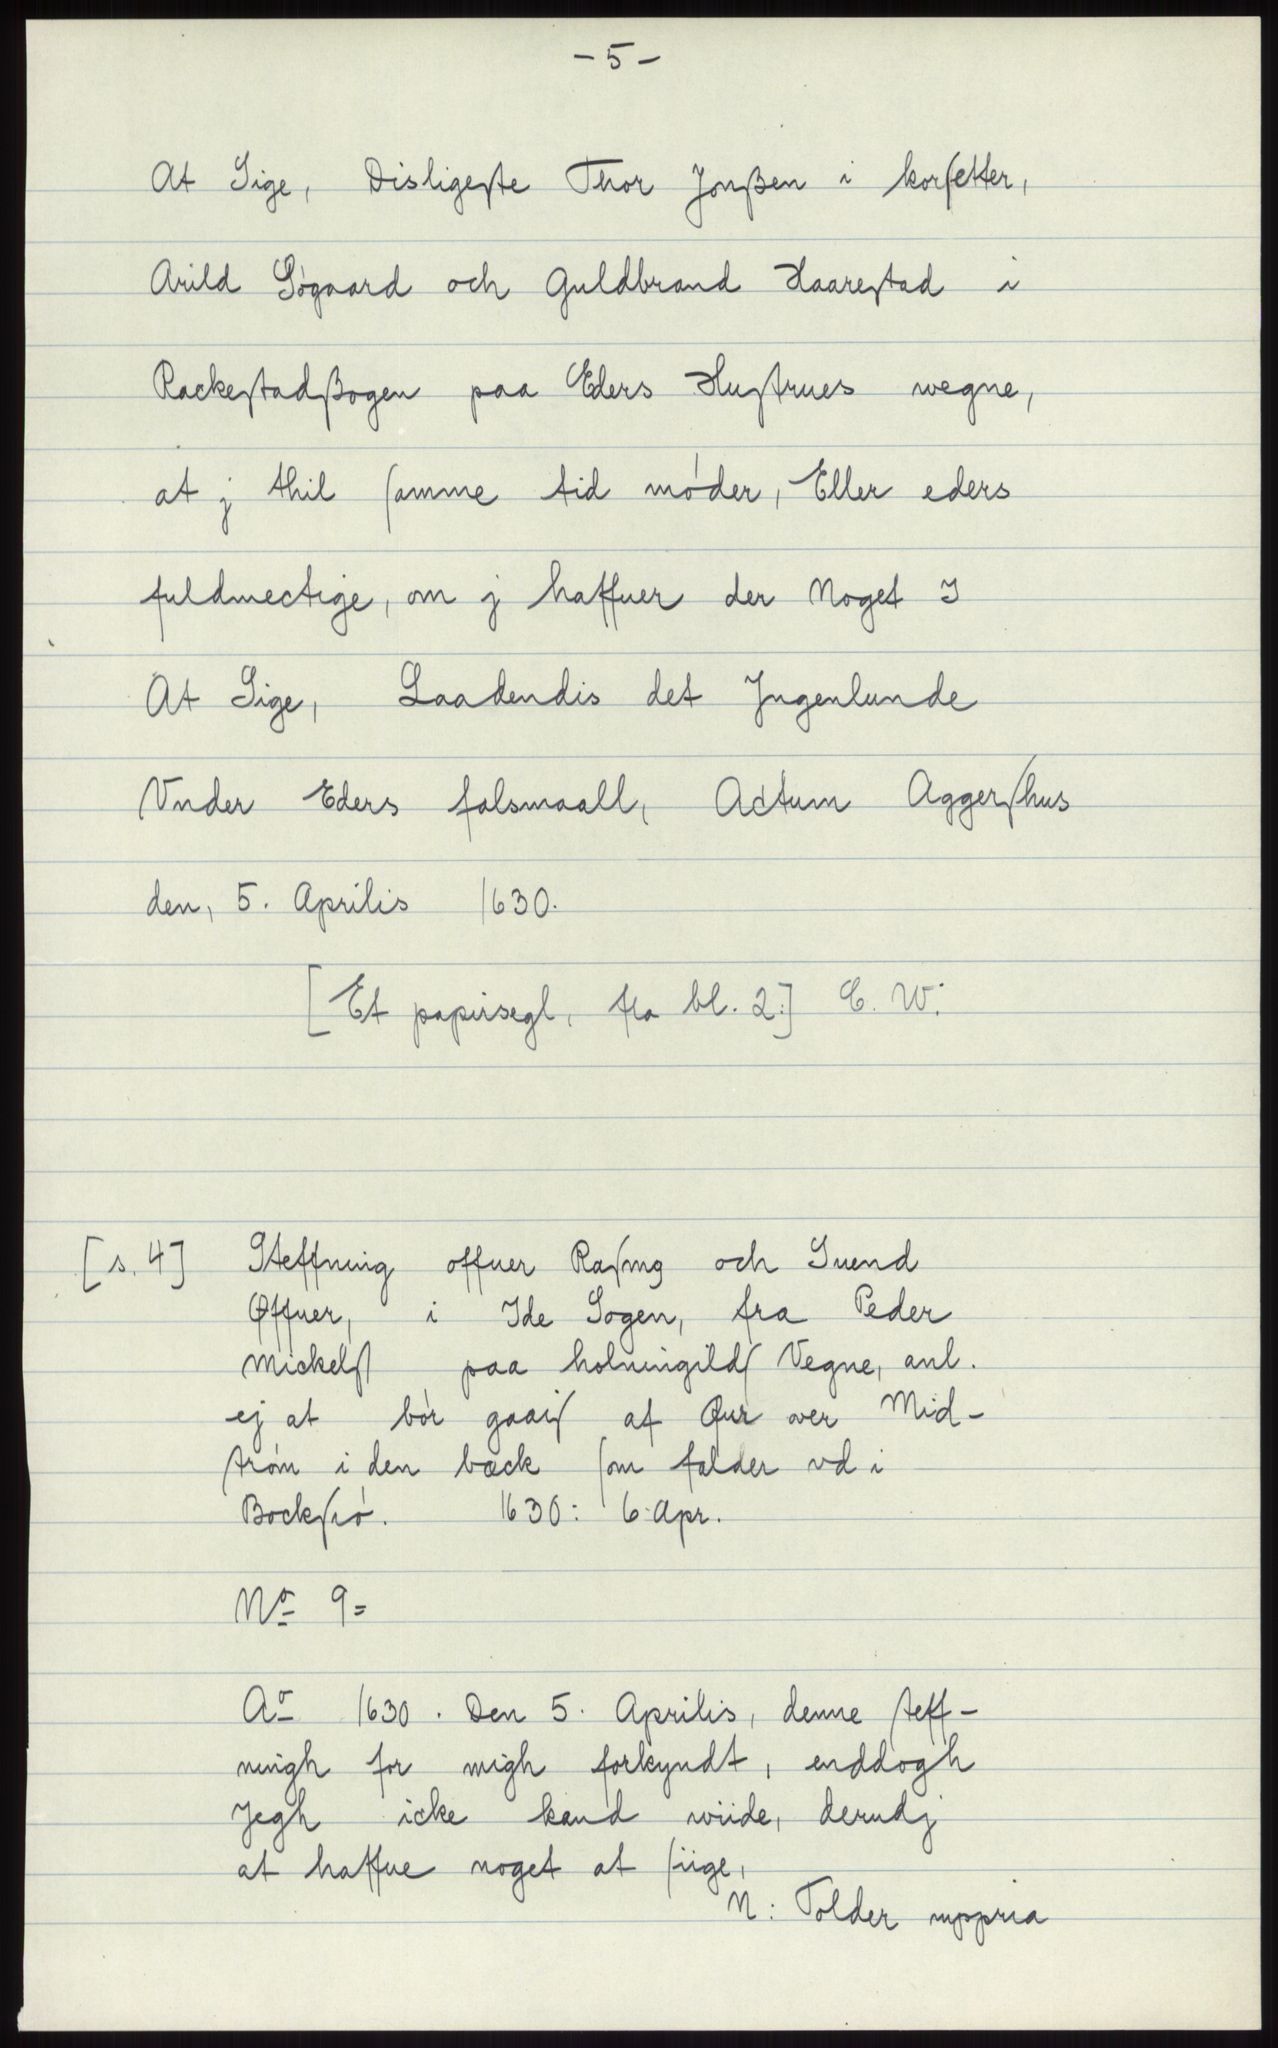 - 5 -
At Sige, Disligeſte Thor Jonßen i korſetter,
Arild Søgaard och Guldbrand Haareſtad i
Rackeſtadßogen paa Eders Huſtrues wegne,
at j thil ſamme tid møder, Eller eders
fuldmectige, om j haffuer der Noget I
At Sige, Laadendis det Jngenlunde
Vnder Eders falsmaall, Actum Aggerſhus
den, 5. Aprilis 1630.
[Et papirsegl, fra bl. 2.] C. W:
[s. 4] Steffning offuer Raſmg och Suend
Øffuer, i Ide Sogen, fra Peder
Mickelſſ paa holmingildſ Vegne, anl.
ej at bør gaaiſ af Qur over Mid-
ſtrøm i den bæck ſom falder vd i
Bockſiø. 1630: 6 Apr.
No 9=
Ao 1630. Den 5. Aprilis, denne ſteff-
ningh for migh forkyndt, enddogh
Jegh icke kand wiide, derudj
at haffue noget at ſiige,
N: Tolder mppria